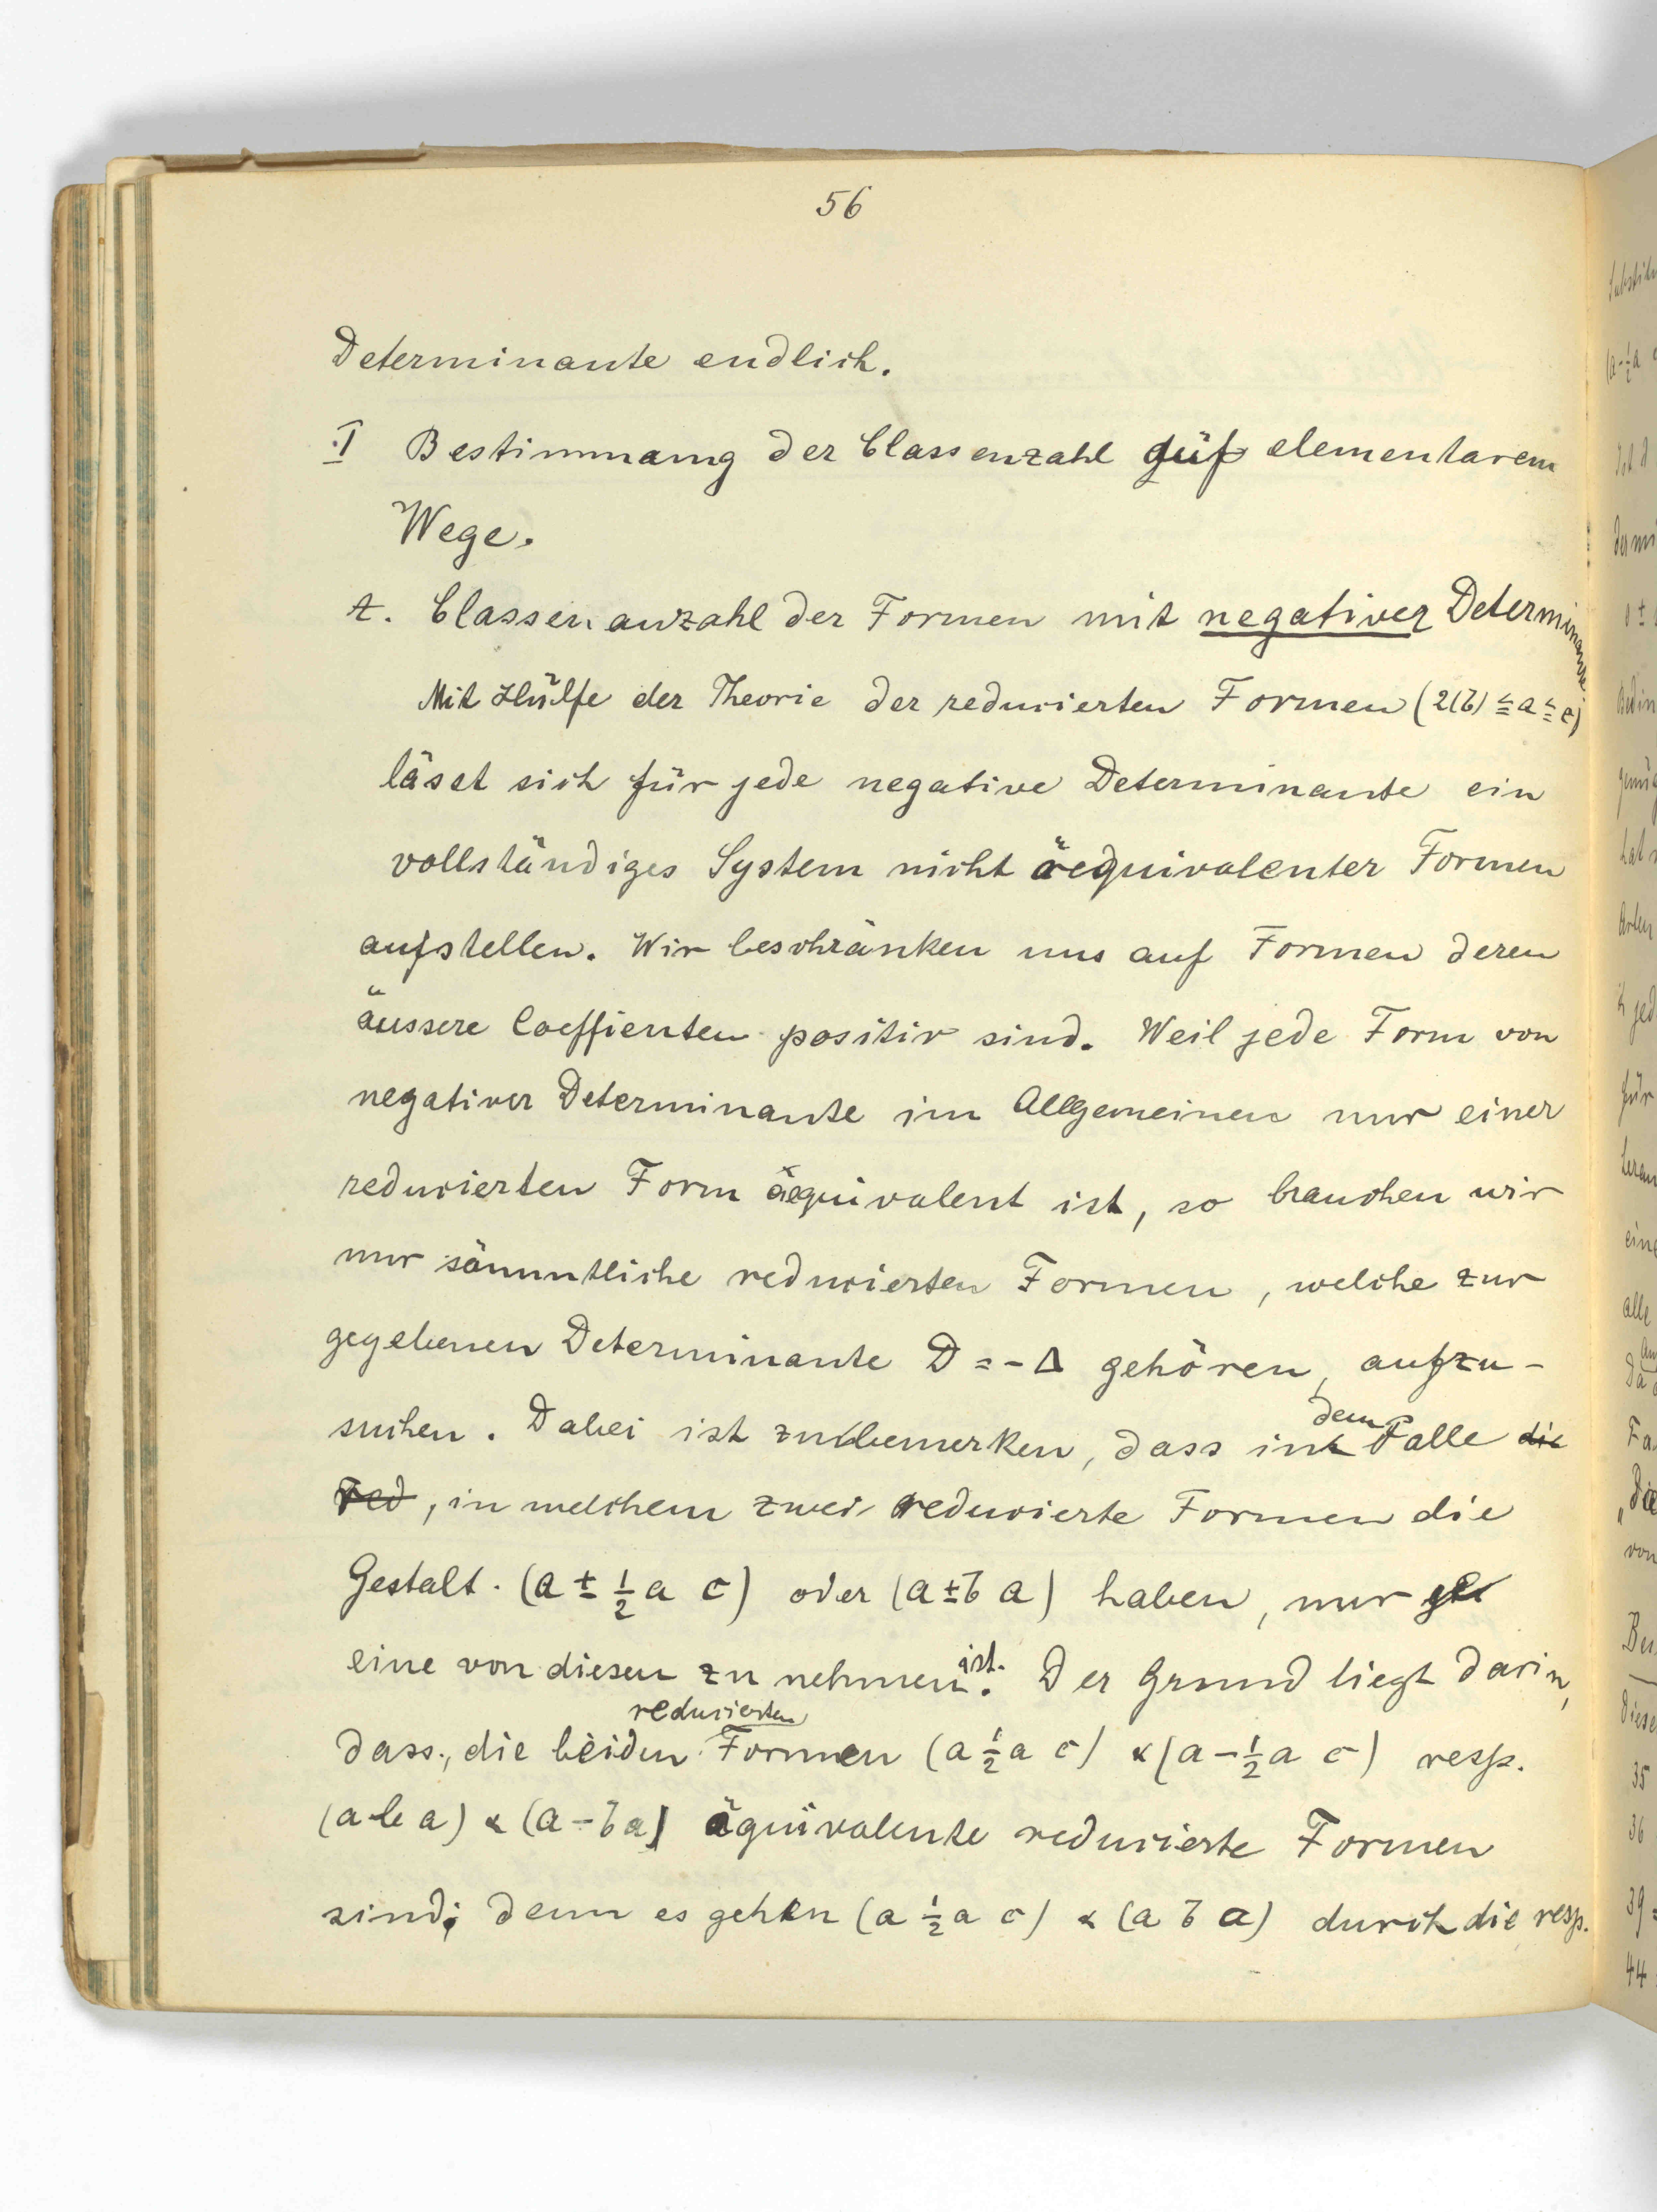 56
Determinante endlich.
I Bestimmung der Classenzahl auf elementarem
Wege.
A. Classenanzahl der Formen mit negativer Determinante
Mit Hülfe der Theorie der reducierten Formen (2(b) ≦ a ≦ c)
lässt sich für jede negative Determinante ein
vollständiges System nicht äequivalenter Formen
aufstellen. Wir beschränken uns auf Formen deren
äussere Coeffienten positiv sind. Weil jede Form von
negativer Determinante im Allgemeinen nur einer
reducierten Form äequivalent ist, so brauchen wir
nur sämmtliche reducierten Formen, welche zur
gegebenen Determinante D = -Δ gehören, aufzu-
suchen. Dabei ist zu bemerken, dass in dem Falle die
red, in welchem zwei reducierte Formen die
Gestalt (a ± 1/2 a c) oder (a ± b a) haben, nur
eine von diesen zu nehmen ist. Der Grund liegt darin,
dass, die beiden reducierten Formen (a 1/2 a c) & (a - 1/2 a c) resp.
(a b a) & (a - b a) äquivalente reducierte Formen
sind; denn es gehen (a 1/2 a c) & (a b a) durch die resp.